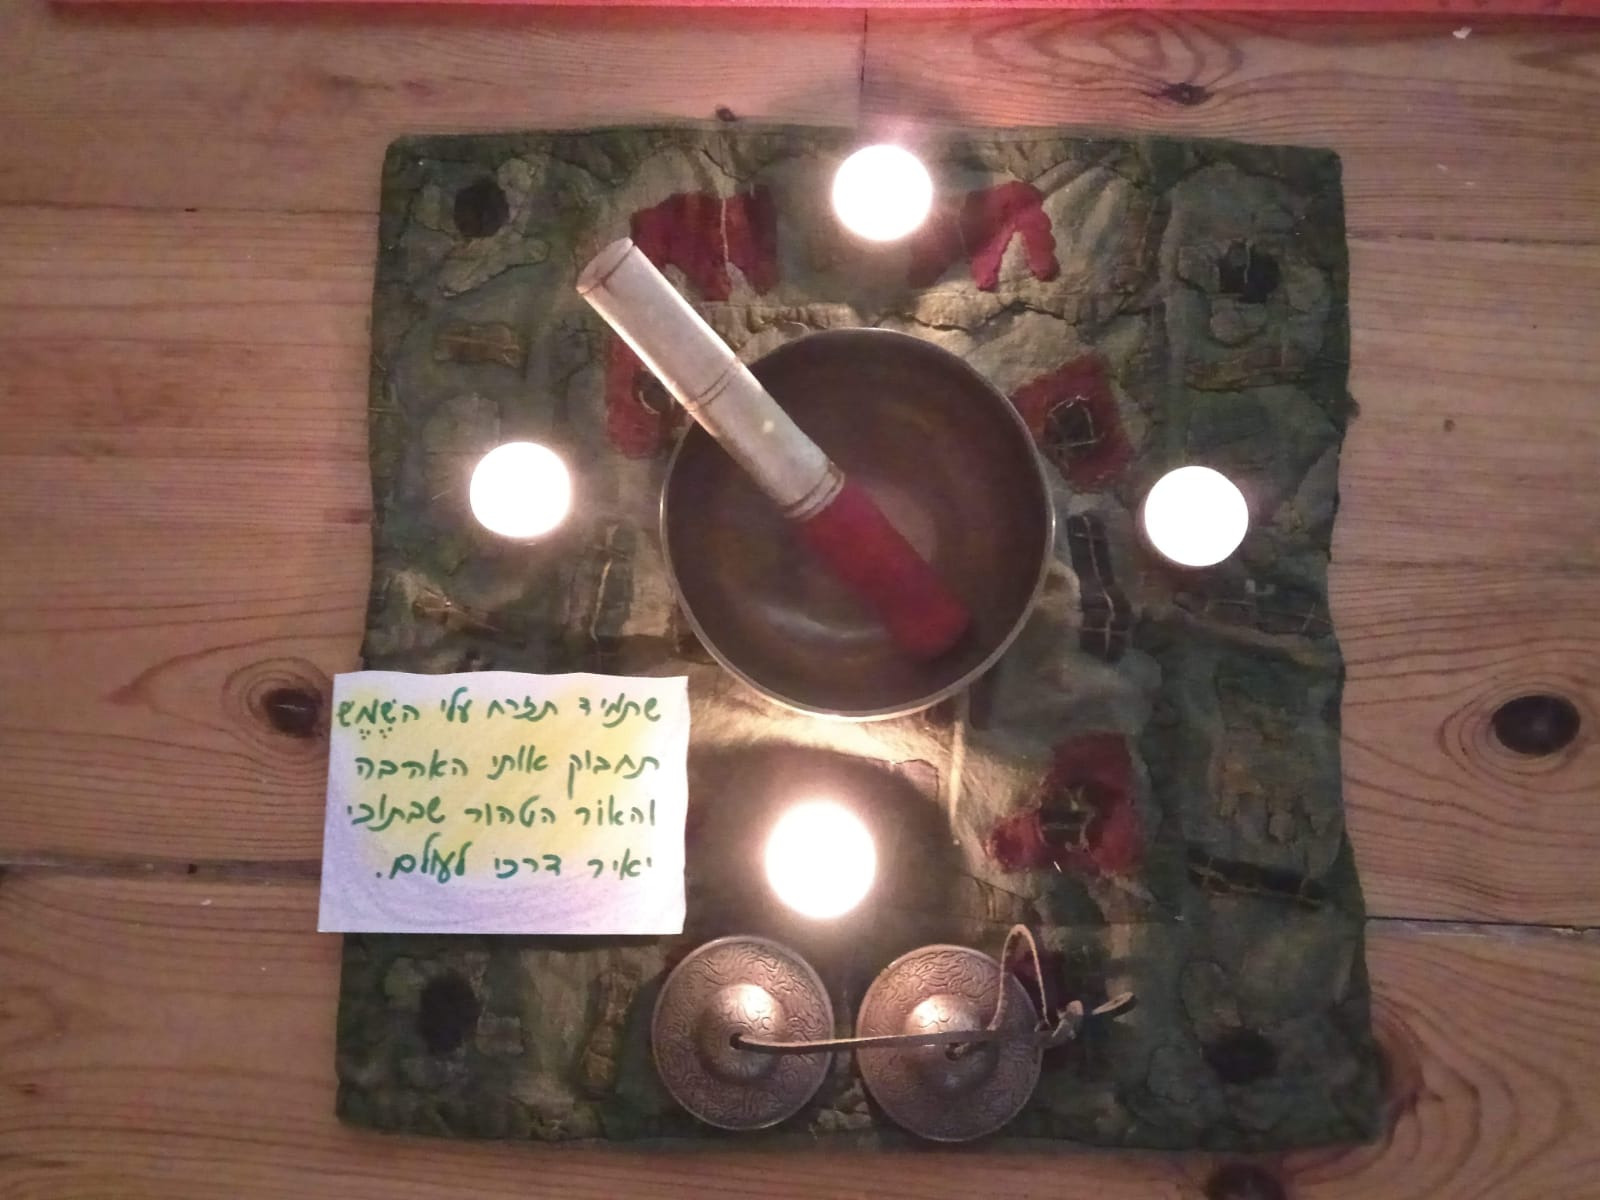 שתמיד תזרח עלי השֶׁמֶשׁ
תחבוק אותי האהבה
והאוֹר הטהור שבתוכי
יאיר דרכי לעולם.